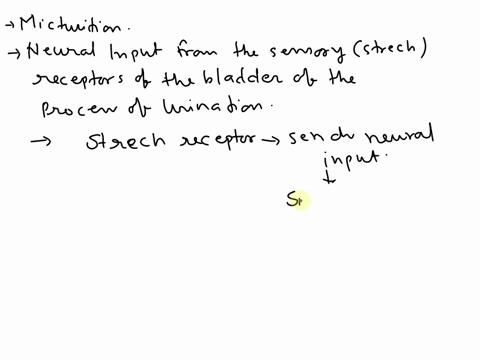 → Mictuition.
→ Neural Input from the sensory (strech)
receptors of the bladder of the
Process of Urination.
→ Strech receptor → sends neural
input.
↓
S